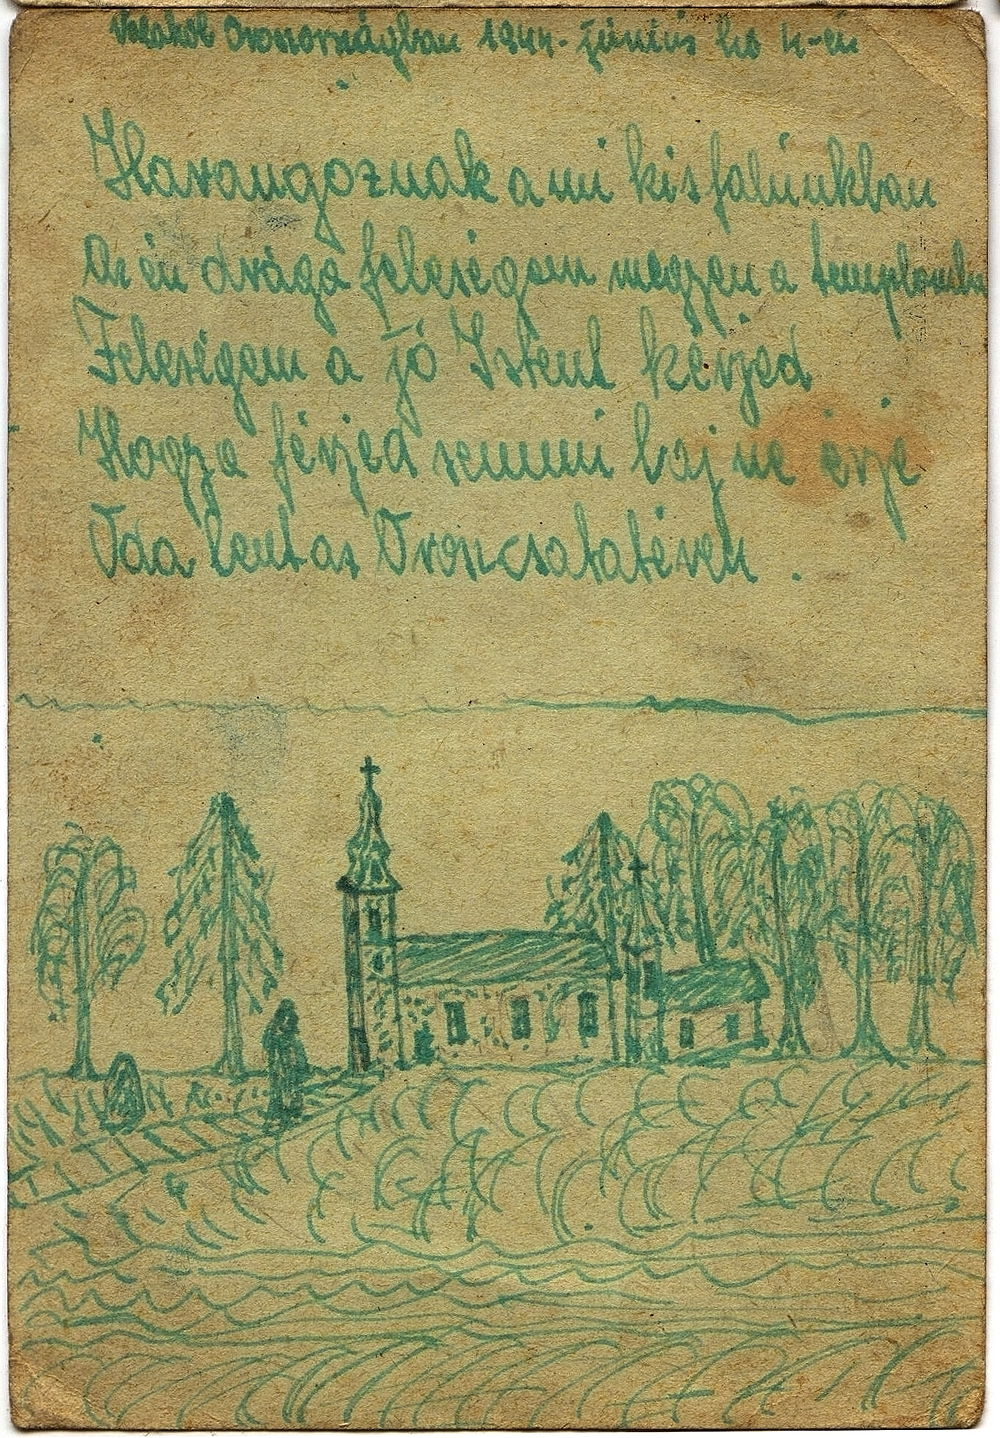 Oroszországban 1944. Június hó 4-én
Harangoznak a mi kis falúnkban
Az én drága feleségem megyen a templomba
Feleségem a jó Istent kérjed
Hogy a férjed semmi baj ne érje
Oda lent az Orosz csatatéren.